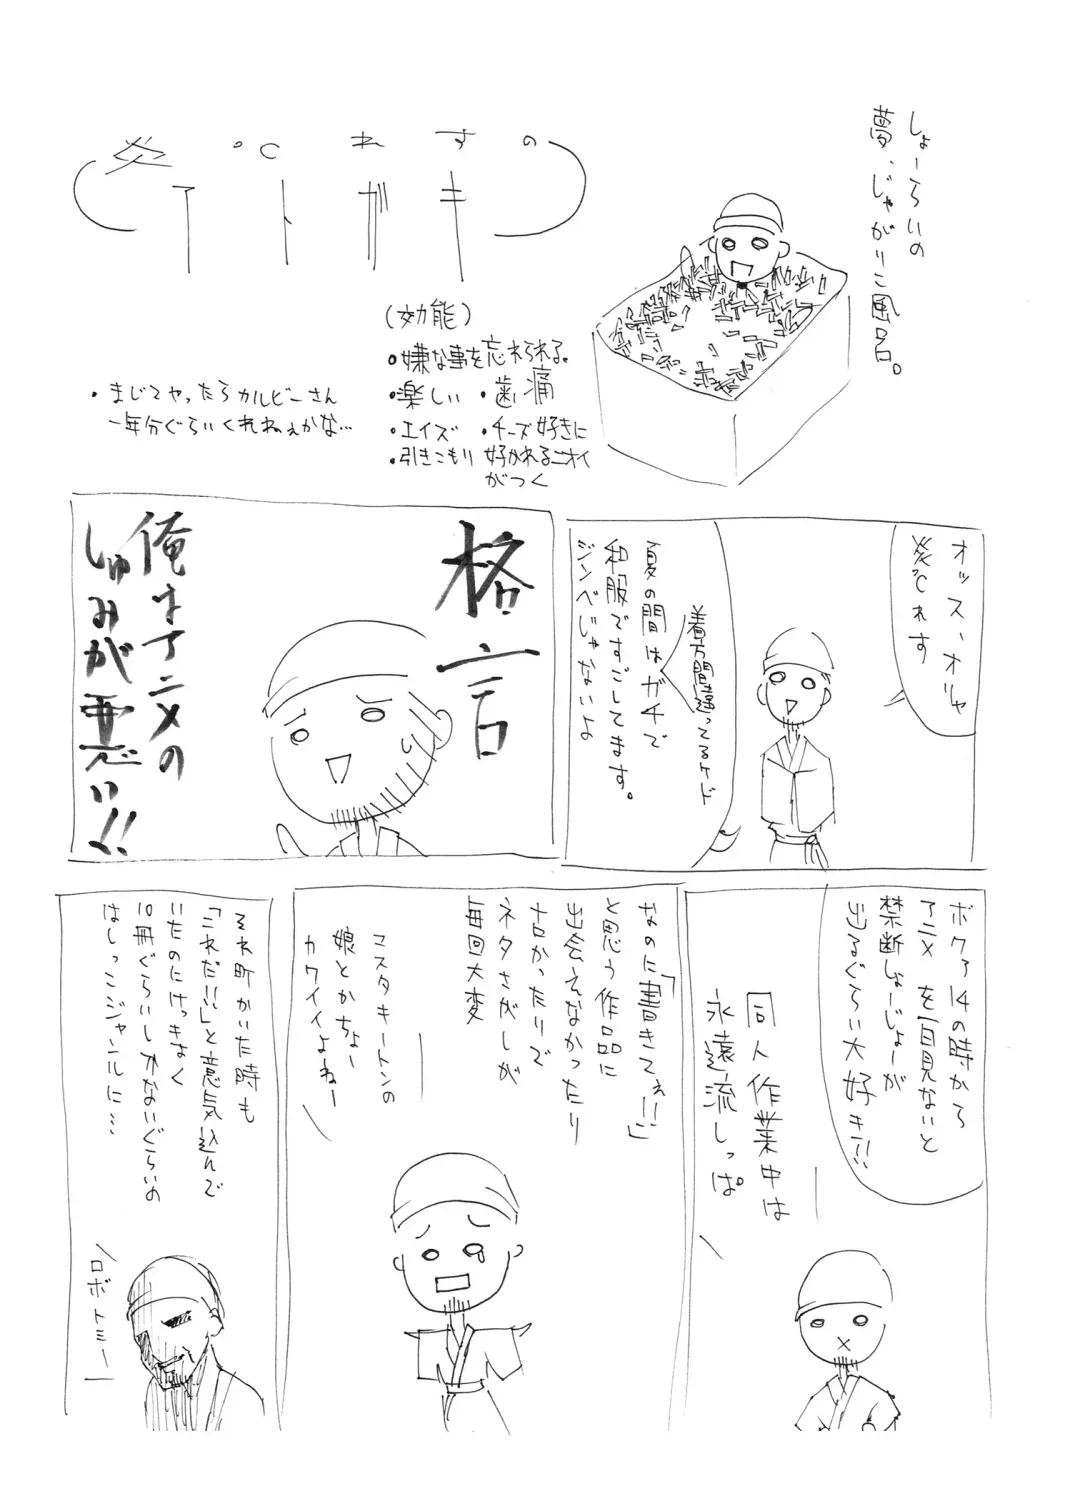 炎℃れすの
アトガキ
しょーらいの
夢、じゃがりこ風呂。
(効能)
・嫌な事を忘れられる。
・楽しい ・歯痛
・エイズ ・チーズ好きに
・引きこもり 好かれるニオイ
がつく
・まじでやったらカルビーさん
一年分ぐらいくれねぇかな…
オッス、オリャ
炎℃れす
着方間違ってるケド
夏の間はガチで
和服ですごしてます。
ジンベじゃないよ
格言
俺はアニメの
しゅみが悪い!!
ボクァ14の時から
アニメを1日見ないと
禁断しょーじょーが
出るぐらい大好き!!
同人作業中は
永遠流しっぱ
なのに「書きてぇ!!」
と思う作品に
出会えなかったり
ナロかったりで
ネタさがしが
毎回大変
マスタキートンの
娘とかちょー
カワイイよねー
それ町かいた時も
「これだ!!」と意気込んで
いたのにけっきょく
10冊ぐらいしかないぐらいの
はしっこジャンルに…
ロボトミー